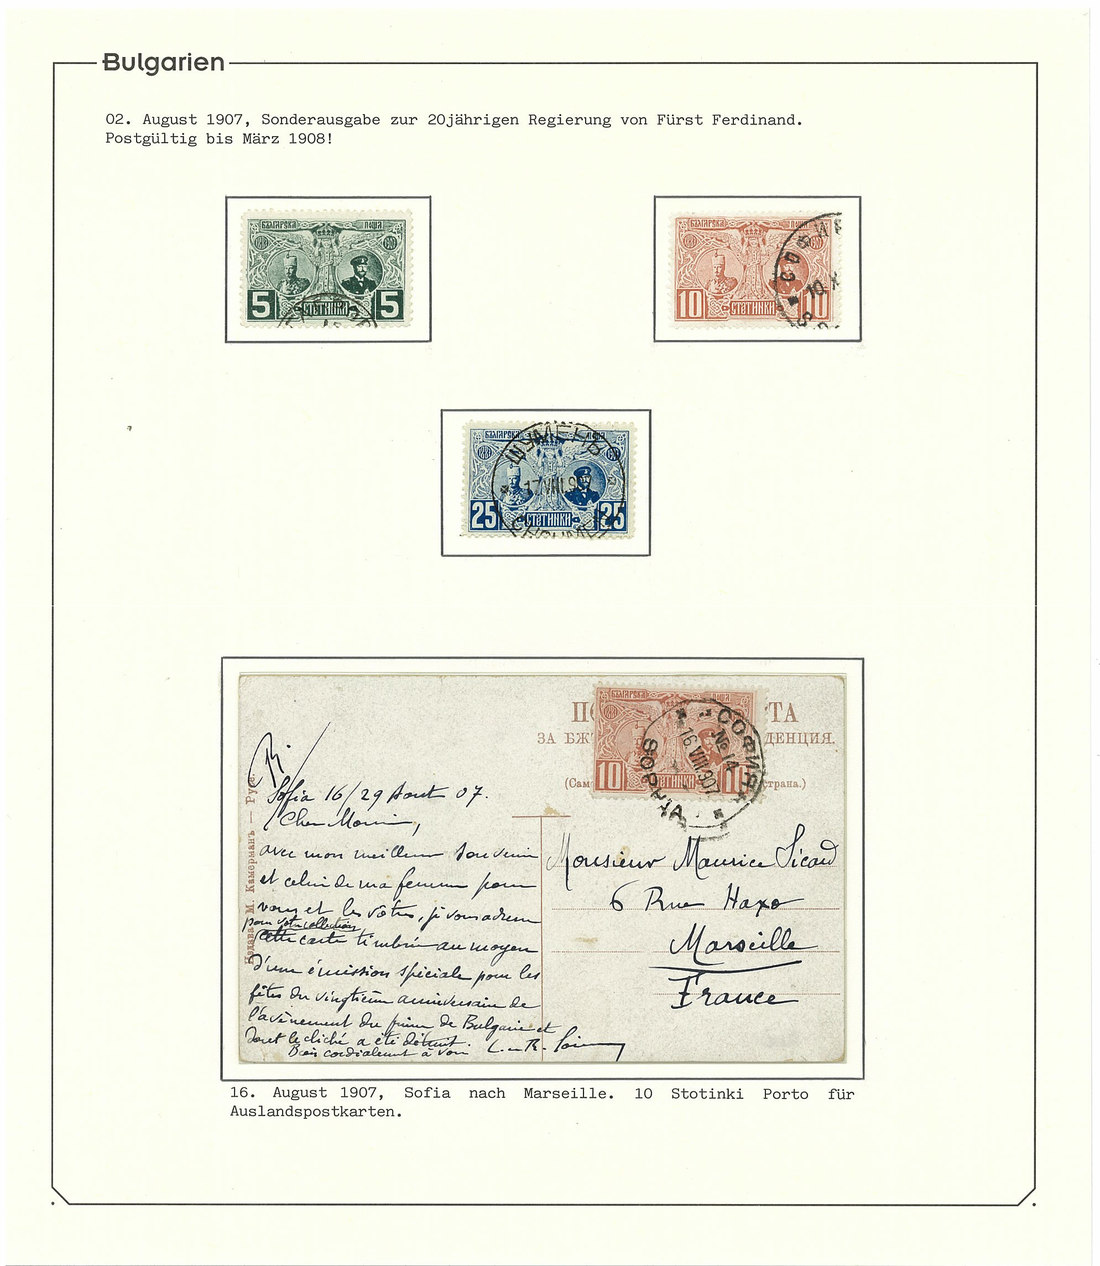 Bulgarien
02. August 1907, Sonderausgabe zur 20jährigen Regierung von Fürst Ferdinand.
Postgültig bis März 1908!
БЪЛГАРСКА ПОЩА
5 СТОТИНКИ 5
БЪЛГАРСКА ПОЩА
10 СТОТИНКИ 10
БЪЛГАРСКА ПОЩА
ШУМЕНЪ
17 VIII 907
25 СТОТИНКИ 25
БЪЛГАРСКА ПОЩА
10 СТОТИНКИ 10
СОФИЯ
№ 14
16 VIII 907
SOPHIA
ТА
ЗА ДЕНЦИЯ.
страна.)
М. Камерманъ — Русе.
Sofia 16/29 Aout 07.
Cher Monsieur,
avec mon meilleur souvenir
et celui de ma femme pour
vous et les vôtres, je vous adresse
pour votre collection
cette carte timbrée au moyen
d'une émission spéciale pour les
fêtes du vingtième anniversaire de
l'avènement du prince de Bulgarie et
dont le cliché a été détruit.
Bien cordialement à vous
Monsieur Maurice Sicard
6 Rue Haxo
Marseille
France
16. August 1907, Sofia nach Marseille. 10 Stotinki Porto für
Auslandspostkarten.